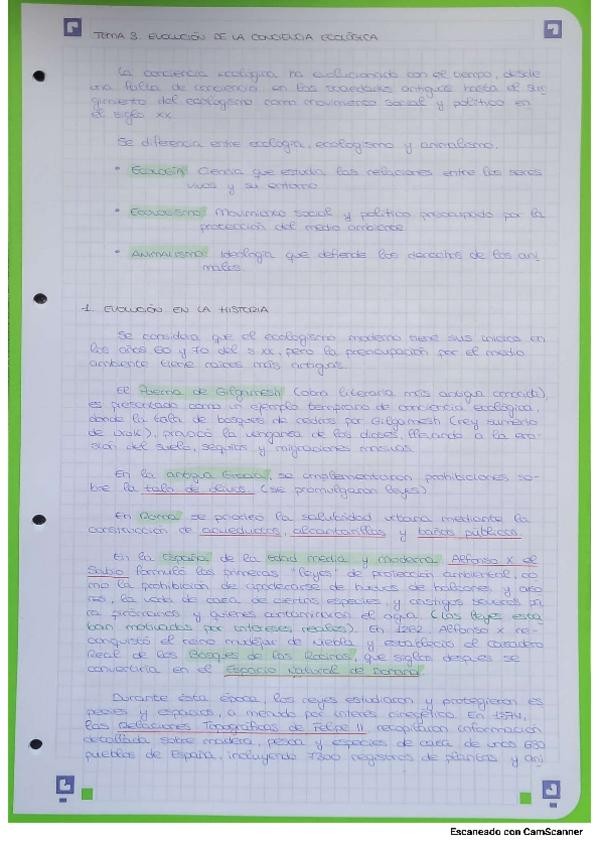 TEMA 3. EVOLUCIÓN DE LA CONCIENCIA ECOLÓGICA
La conciencia ecológica ha evolucionado con el tiempo, desde
una falta de conciencia en las sociedades antiguas hasta el sur
gimiento del ecologismo como movimiento social y político en
el siglo XX.
Se diferencia entre ecología, ecologismo y animalismo.
• ECOLOGÍA: Ciencia que estudia las relaciones entre los seres
vivos y su entorno
• ECOLOGISMO: Movimiento social y político preocupado por la
protección del medio ambiente
• ANIMALISMO: Ideología que defiende los derechos de los ani
males.
1. EVOLUCIÓN EN LA HISTORIA
Se considera que el ecologismo moderno tiene sus inicios en
los años 60 y 70 del s.XX, pero la preocupación por el medio
ambiente tiene raíces más antiguas.
El Poema de Gilgamesh (obra literaria más antigua conocida),
es presentado como un ejemplo temprano de conciencia ecológica,
donde la tala de bosques de cedros por Gilgamesh (rey sumerio
de Uruk), provocó la venganza de los dioses, llevando a la ero-
sión del suelo, sequías y migraciones masivas.
En la antigua Grecia, se implementaron prohibiciones so-
bre la tala de olivos (se promulgaron leyes)
En Roma se priorizó la salubridad urbana mediante la
construcción de acueductos, alcantarillas y baños públicos.
En la España de la edad media y moderna Alfonso X el
Sabio formuló las primeras "leyes" de protección ambiental, co
mo la prohibición de apoderarse de huevos de halcones, y azo
res, la veda de caza de ciertas especies, y castigos severos pa
ra pirómanos y quienes contaminaron el agua (las leyes esta
ban motivadas por intereses reales). En 1262, Alfonso X re-
conquistó el reino mudéjar de Niebla y estableció el Cazadero
Real de los Bosques de las Rocinas, que siglos después se
convertiría en el Espacio Natural de Doñana.
Durante ésta época, los reyes estudiaron y protegieron es
pecies y espacios, a menudo por interés cinegético. En 1574,
las Relaciones Topográficas de Felipe II recopilaron información
detallada sobre madera, pesca y especies de caza de unos 630
pueblos de España, incluyendo 7300 registros de plantas y ani
Escaneado con CamScanner